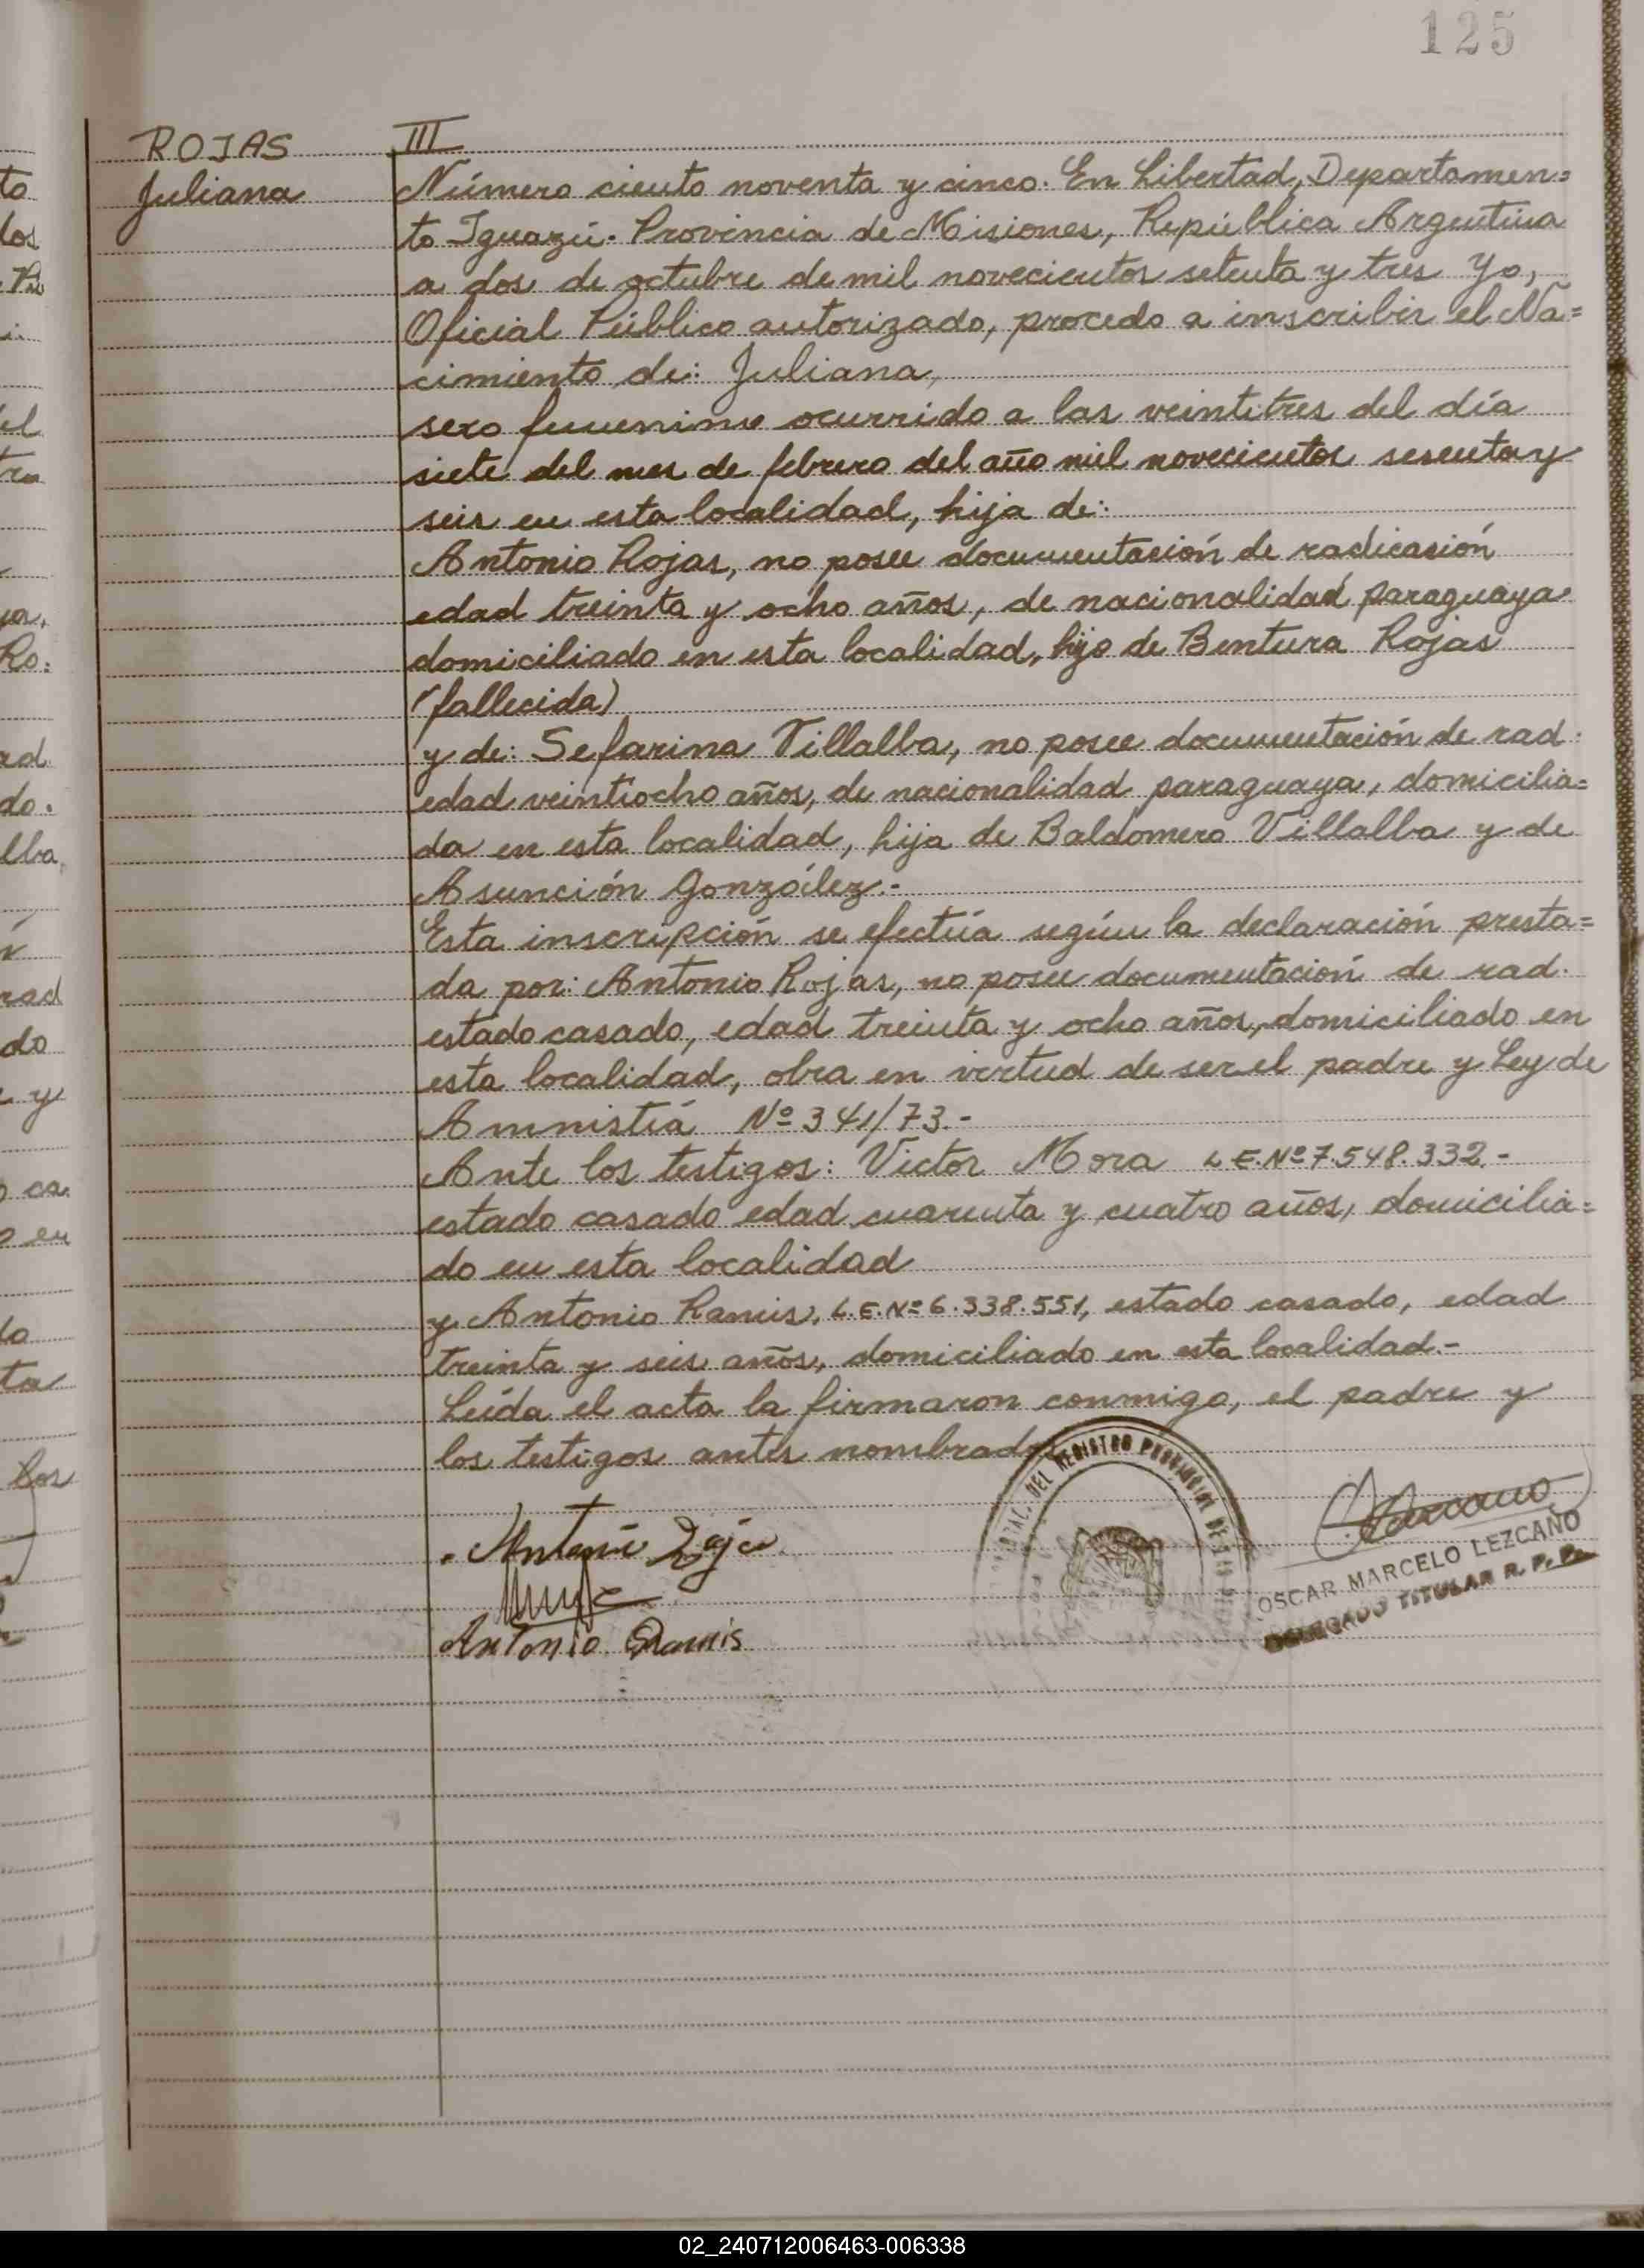 125
ROJAS
Juliana
III
Número ciento noventa y cinco. En Libertad, Departamen=
to Iguazú. Provincia de Misiones, República Argentina
a dos de octubre de mil novecientos setenta y tres Yo,
Oficial Público autorizado, procedo a inscribir el Na=
cimiento de: Juliana,
sexo femenino ocurrido a las veintitres del día
siete del mes de febrero del año mil novecientos sesenta y
seis en esta localidad, hija de:
Antonio Rojas, no posee documentasión de radicasión
edad treinta y ocho años, de nacionalidad paraguaya
domiciliado en esta localidad, hijo de Bentura Rojas
(fallecida)
y de: Sefarina Villalba, no posee documentación de rad.
edad veintiocho años, de nacionalidad paraguaya, domicilia=
da en esta localidad, hija de Baldomero Villalba y de
Asunción González.-
Esta inscripción se efectúa según la declaración presta=
da por: Antonio Rojas, no posee documentación de rad.
estado casado, edad treinta y ocho años, domiciliado en
esta localidad, obra en virtud de ser el padre y Ley de
Amnistiá Nº 341/73.-
Ante los testigos: Victor Mora L.E.Nº 7.548.332.-
estado casado edad cuarenta y cuatro años, domicilia=
do en esta localidad
y Antonio Ramis, L.E.Nº 6.338.551, estado casado, edad
treinta y seis años, domiciliado en esta localidad.-
Leída el acta la firmaron conmigo, el padre y
los testigos antes nombrados
DEL REGISTRO PROVINCIAL DE LAS
Antonio Roja
Antonio Ramis
Lezcano
OSCAR MARCELO LEZCANO
DELEGADO TITULAR R. P. P.
02_240712006463-006338